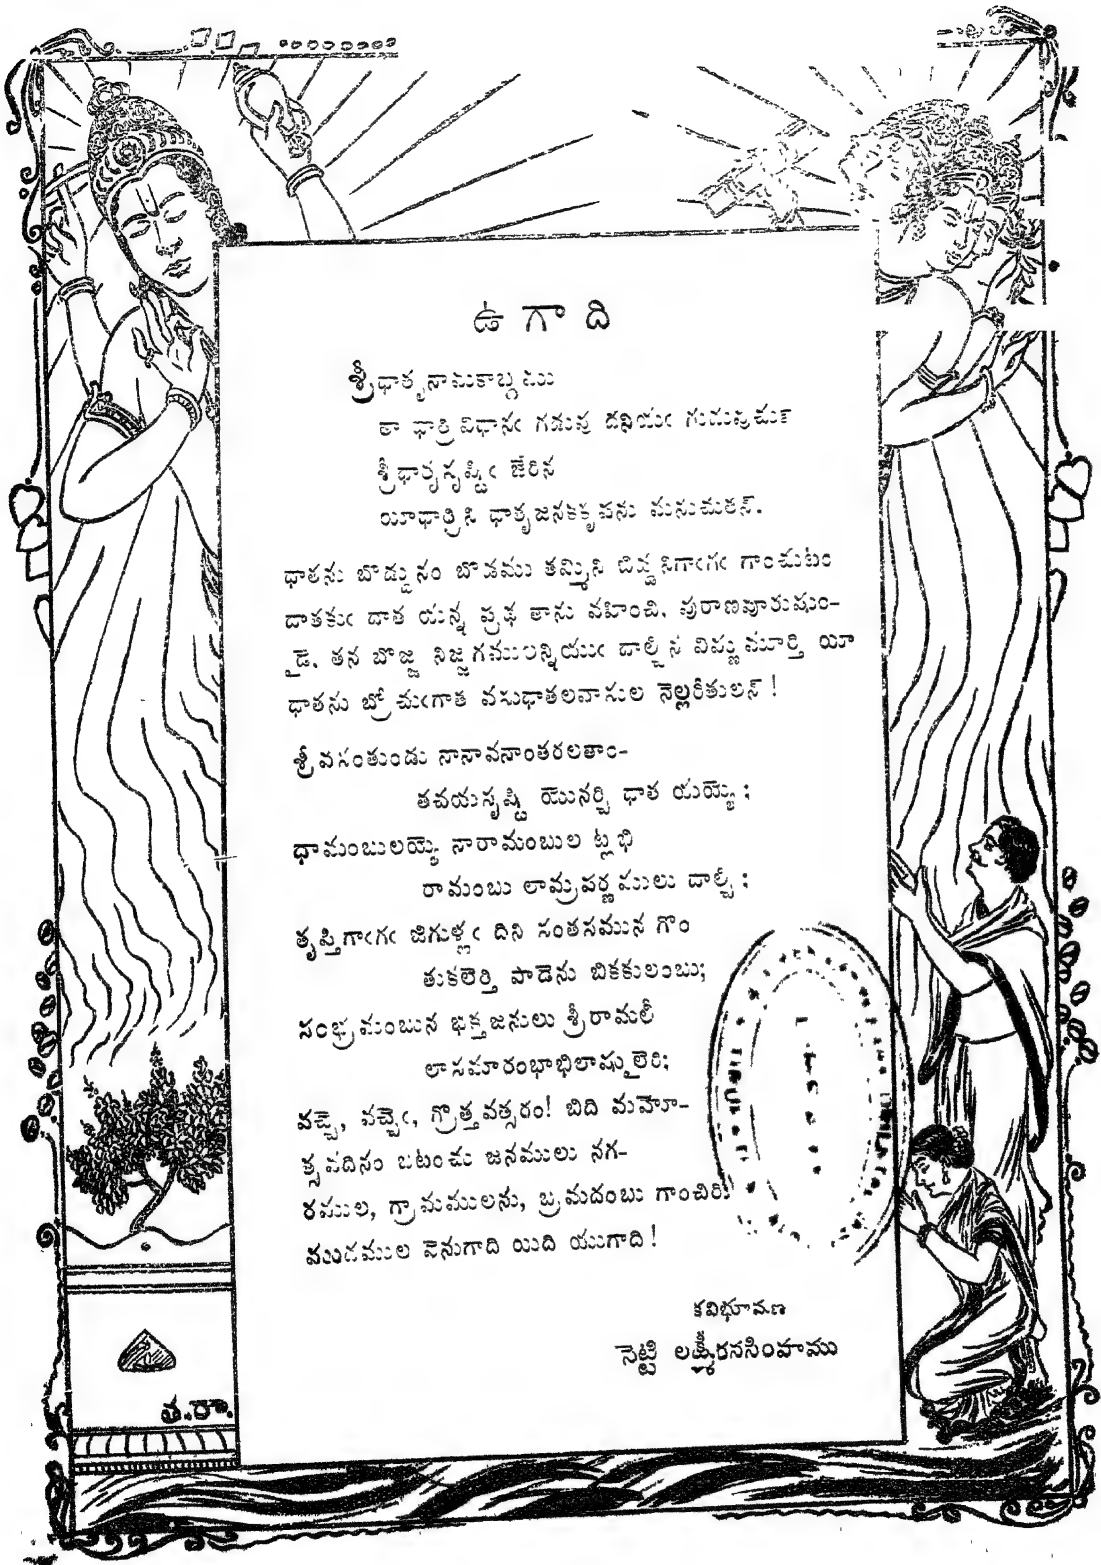 ఉగాది
శ్రీధాతృనామకాబ్దము
తా ధాత్రి విధానఁ గడువు దనియఁ గుడుపుచుక్
శ్రీధాతృసృష్టిఁ జేరిన
యీధాత్రిని ధాతృజనకకృపను మనుచుతన్.
ధాతను బొడ్డునం బొడము తమ్మిని బివ్వసిగాఁగఁ గాంచుటం
దాతకుఁ దాత యన్న ప్రథ తాను వహించి, పురాణపూరుషుం-
డై, తన బొజ్జ నిజ్జగములన్నియుఁ దాల్చిన విష్ణుమూర్తి యీ
ధాతను బ్రోచుఁగాత వసుధాతలవాసుల నెల్లరీతులన్!
శ్రీవసంతుండు నానావనాంతరలతాం-
తచయసృష్టి యొనర్చి ధాత యయ్యె;
ధామంబులయ్యె నారామంబుల ట్లభి
రామంబు లామ్రపర్ణములు దాల్చి;
తృప్తిగాఁగఁ జిగుళ్లఁ దిని సంతసమున గొం
తుకలెత్తి పాడెను బికకులంబు;
సంభ్రమంబున భక్తజనులు శ్రీరామలీ
లాసమారంభాభిలాషులైరి;
వచ్చె, వచ్చెఁ, గ్రొత్తవత్సరం! బిది మహో-
త్సవదినం బటంచు జనములు నగ-
రముల, గ్రామములను, బ్రమదంబు గాంచిరి
ముదముల వెనుగాది యిది యుగాది!
కవిభూషణ
సెట్టి లక్ష్మీనరసింహము
త.రా.